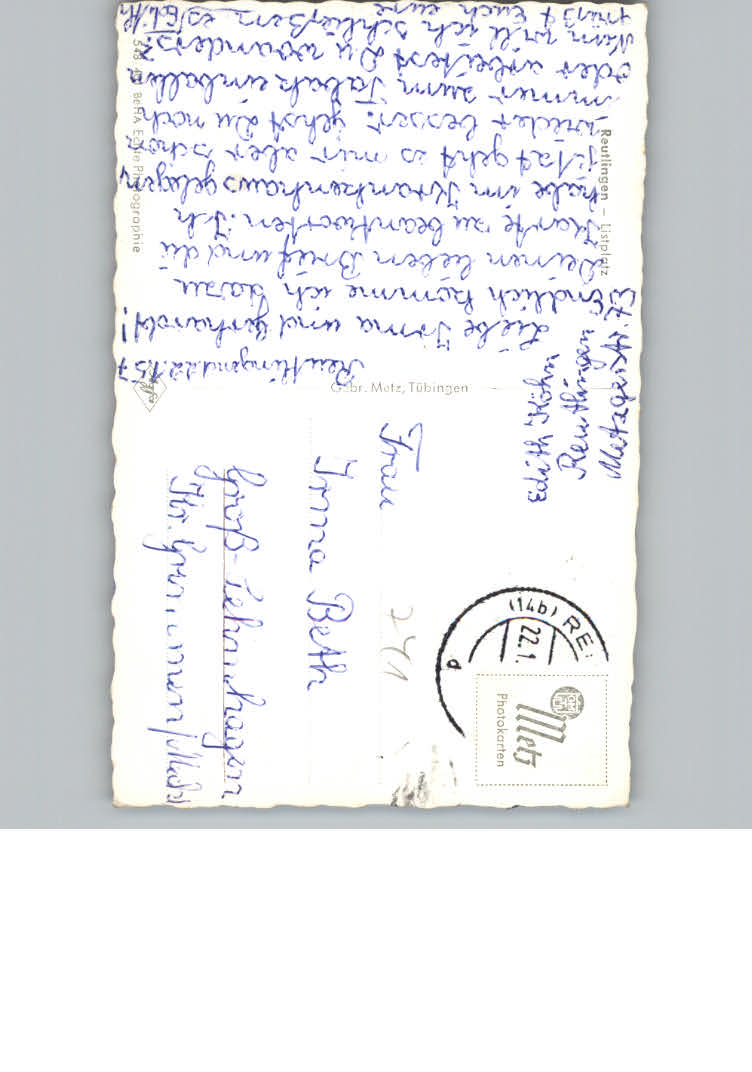 Reutlingen – Listplatz
Reutlingen, d. 22.1.57
Liebe Irma und Gerhardt!
Endlich komme ich dazu
Deinen lieben Brief und die
Karte zu beantworten. Ich
habe im Krankenhaus gelegen
jetzt geht es mir aber schon
wieder besser. Gehst Du noch
immer zum Tabak einballen
oder arbeitest Du woanders?
Nun will ich schließen es
grüßt Euch eure Edith
Echte Photographie
Gebr. Metz, Tübingen
Edith Köhn
Reutlingen
(14b) RE
22.1.
d
Metz
Photokarten
241
Frau
Irma Beth
Groß-
Kr.